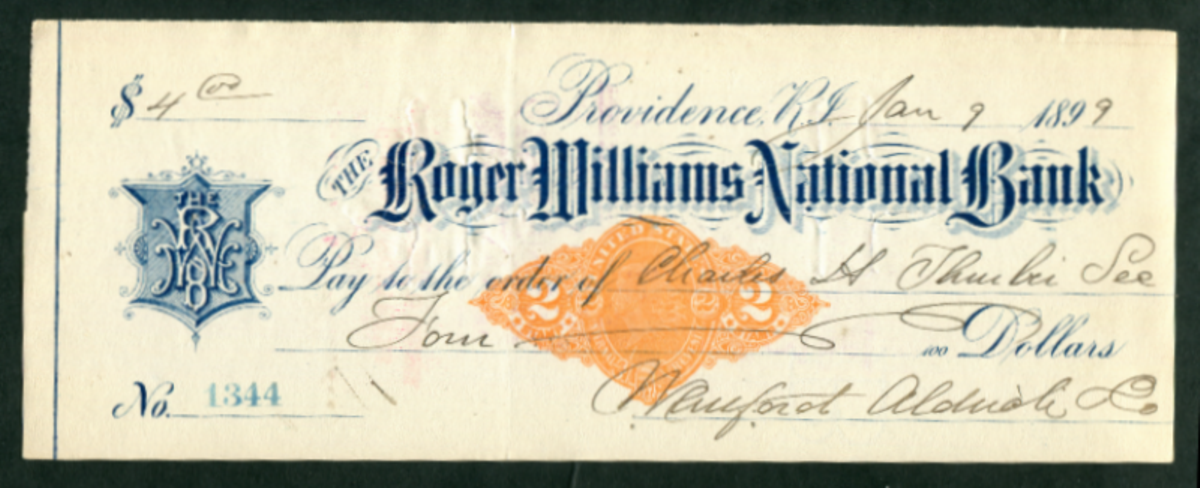 $ 4 00
Providence, R.I. Jan 9 1899
THE Roger Williams National Bank
THE RWNB
Pay to the order of Charles H See
UNITED
2 2
Four 100 Dollars
No. 1344
Aldrich Co